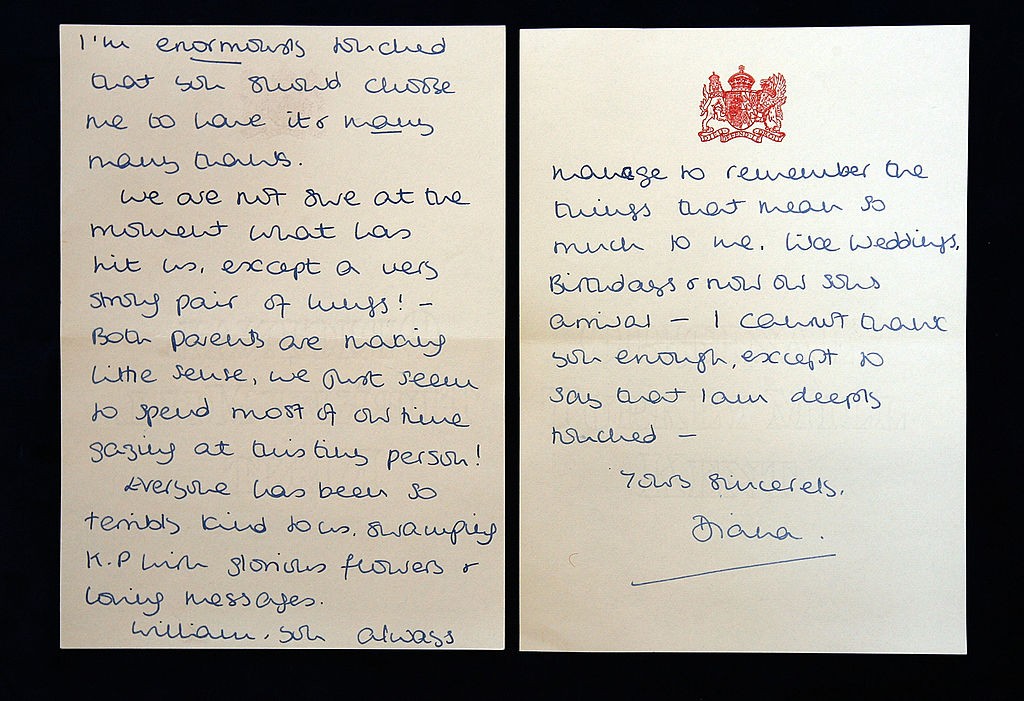 I'm enormously touched
that you should choose
me to have it & many
many thanks.
We are not sure at the
moment what has
hit us, except a very
strong pair of lungs! –
Both parents are making
little sense, we just seem
to spend most of our time
gazing at this tiny person!
Everyone has been so
terribly kind to us, swamping
K.P with glorious flowers &
loving messages.
William, you always
manage to remember the
things that mean so
much to me. Like weddings,
Birthdays & now our sons
arrival – I cannot thank
you enough, except to
say that I am deeply
touched –
Yours sincerely,
Diana.